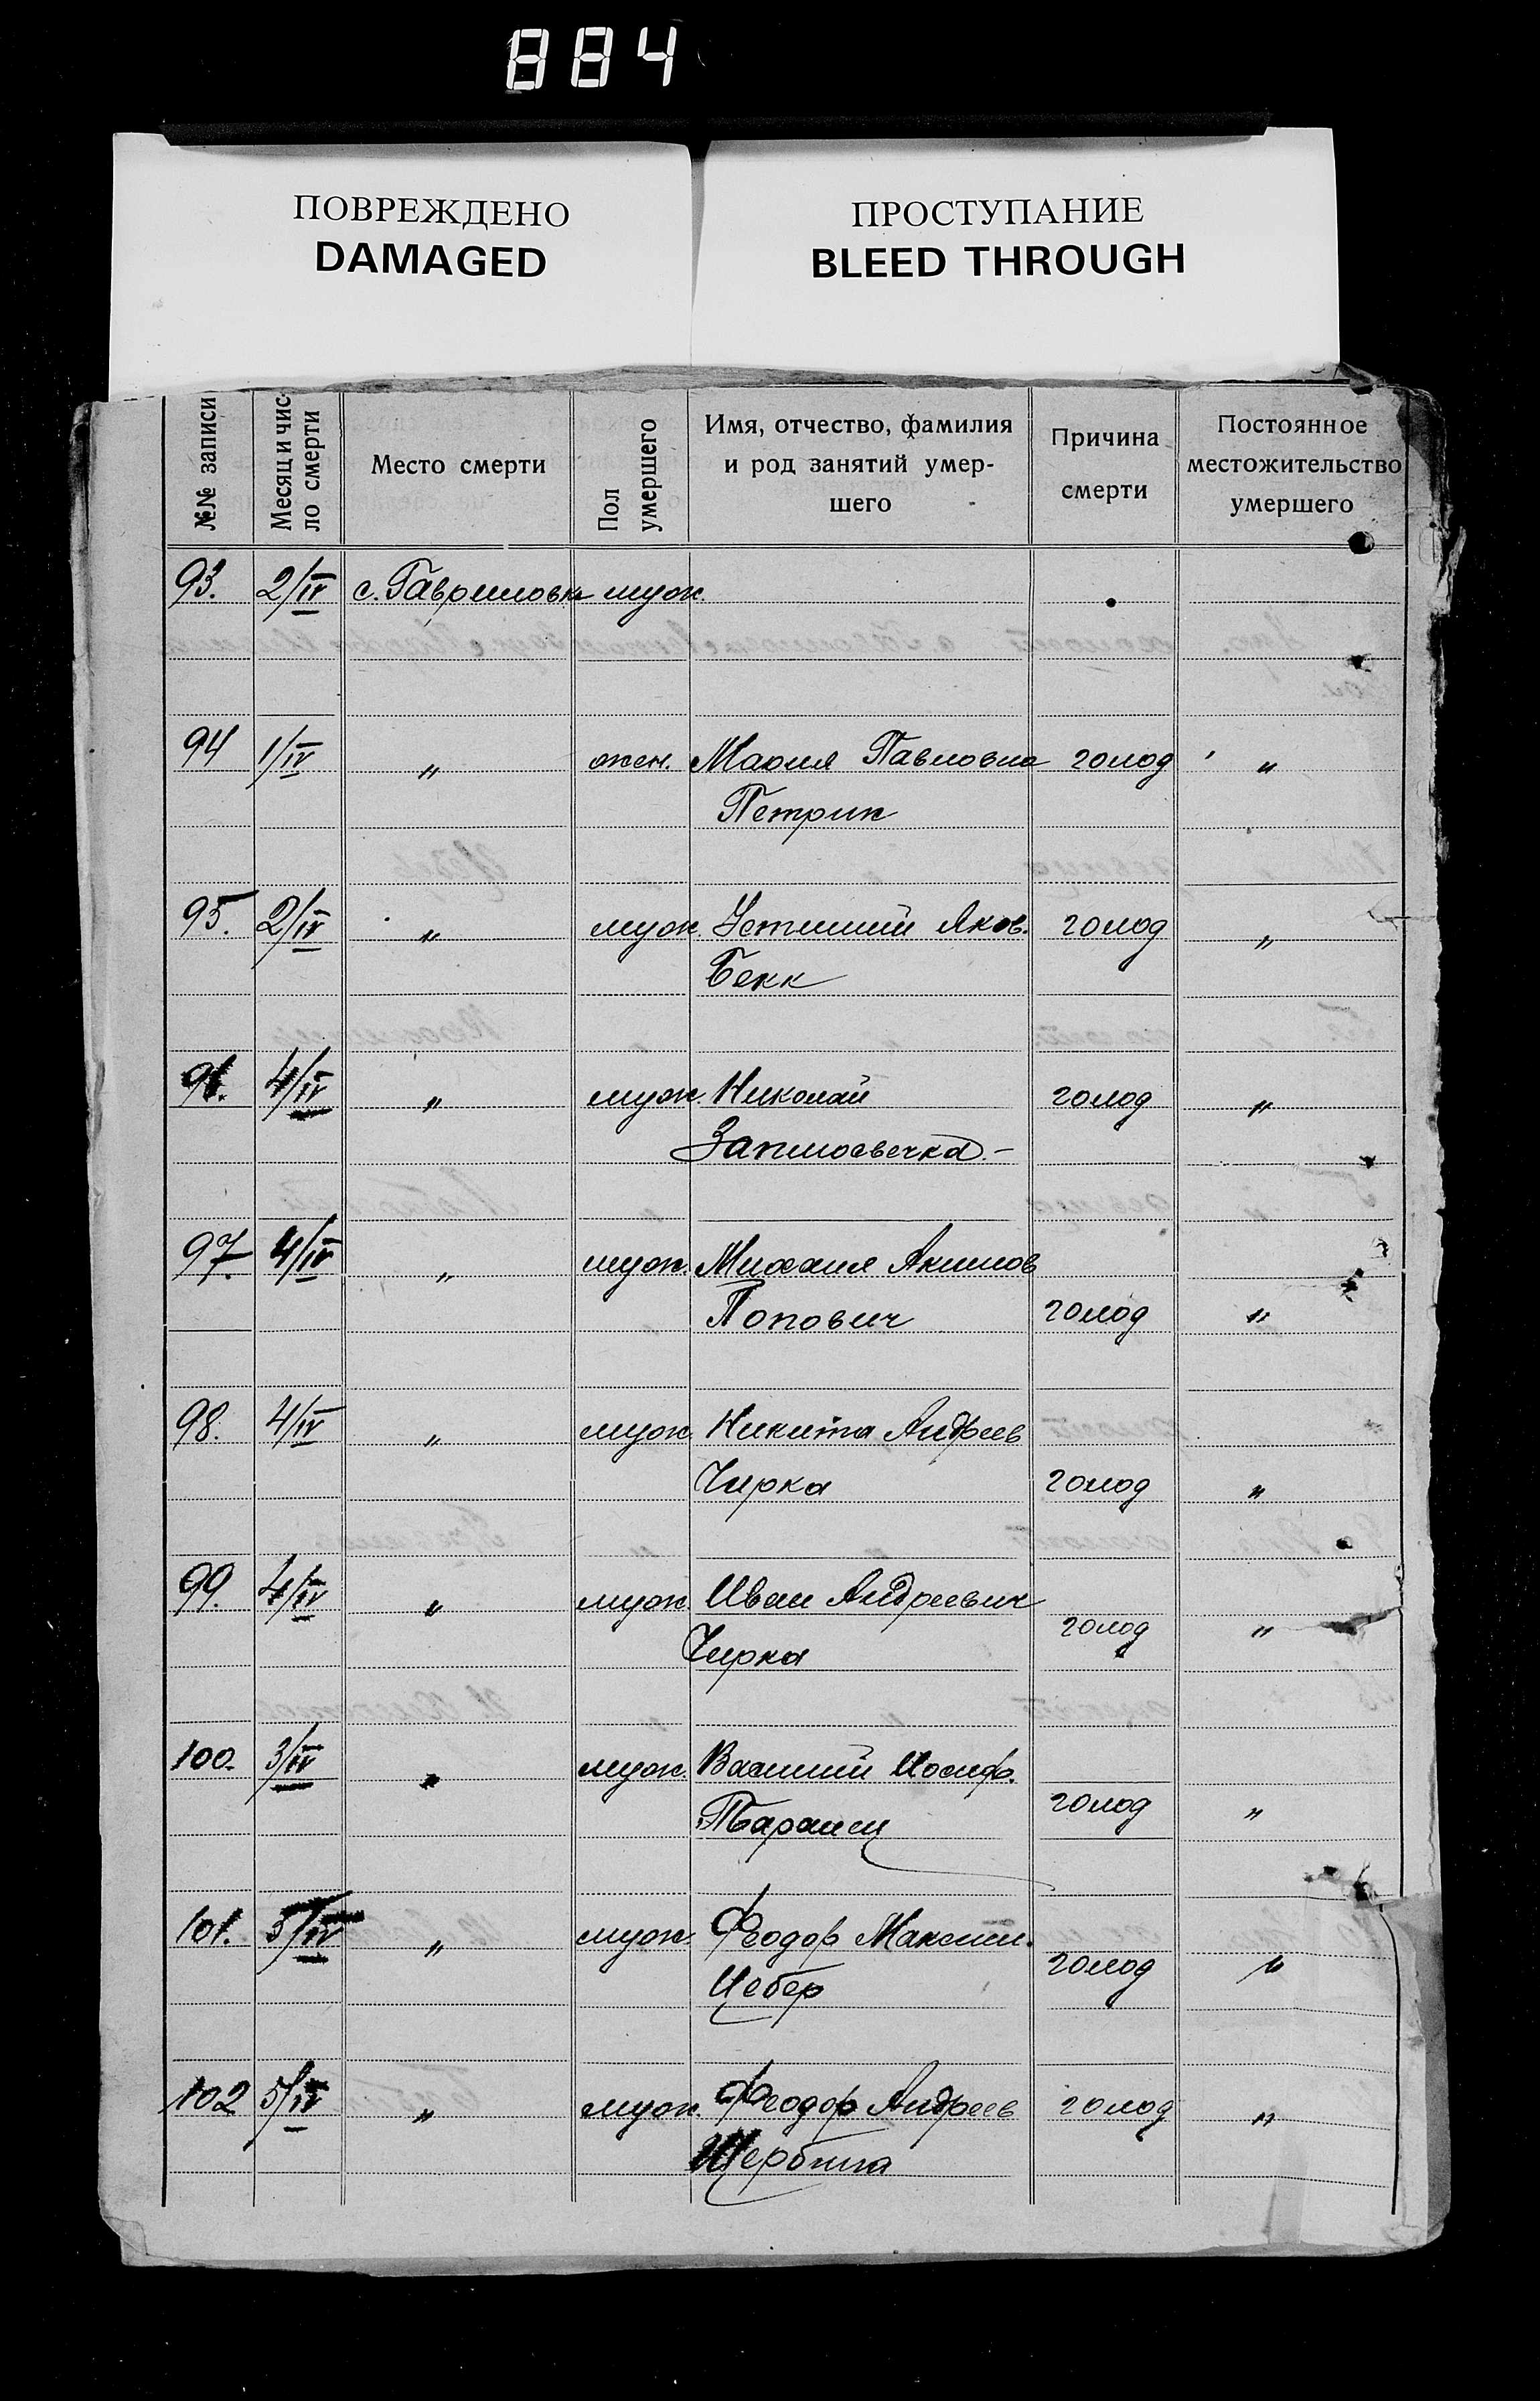 884
ПОВРЕЖДЕНО
DAMAGED
ПРОСТУПАНИЕ
BLEED THROUGH
№№ записи
Месяц и чис-
ло смерти
Место смерти
Пол
умершего
Имя, отчество, фамилия
и род занятий умер-
шего
Причина
смерти
Постоянное
местожительство
умершего
93. 2/IV с. Гавриловка муж.
94 1/IV „ жен. Мария Павловна голод „
Петрик
95. 2/IV „ муж. Яков. голод „
Бекк
96. 4/IV „ муж. Николай голод „
97. 4/IV „ муж. Михаил Акимов
Попович голод „
98. 4/IV „ муж. Никита Андреев
Чирка голод „
99. 4/IV „ муж. Иван Андреевич
Чирка голод „
100. 3/IV „ муж. Василий Иосиф.
Таранец голод „
101. 5/IV „ муж. Феодор Максим.
Цебер голод „
102 5/IV „ муж. Феодор Андреев голод „
Щербина